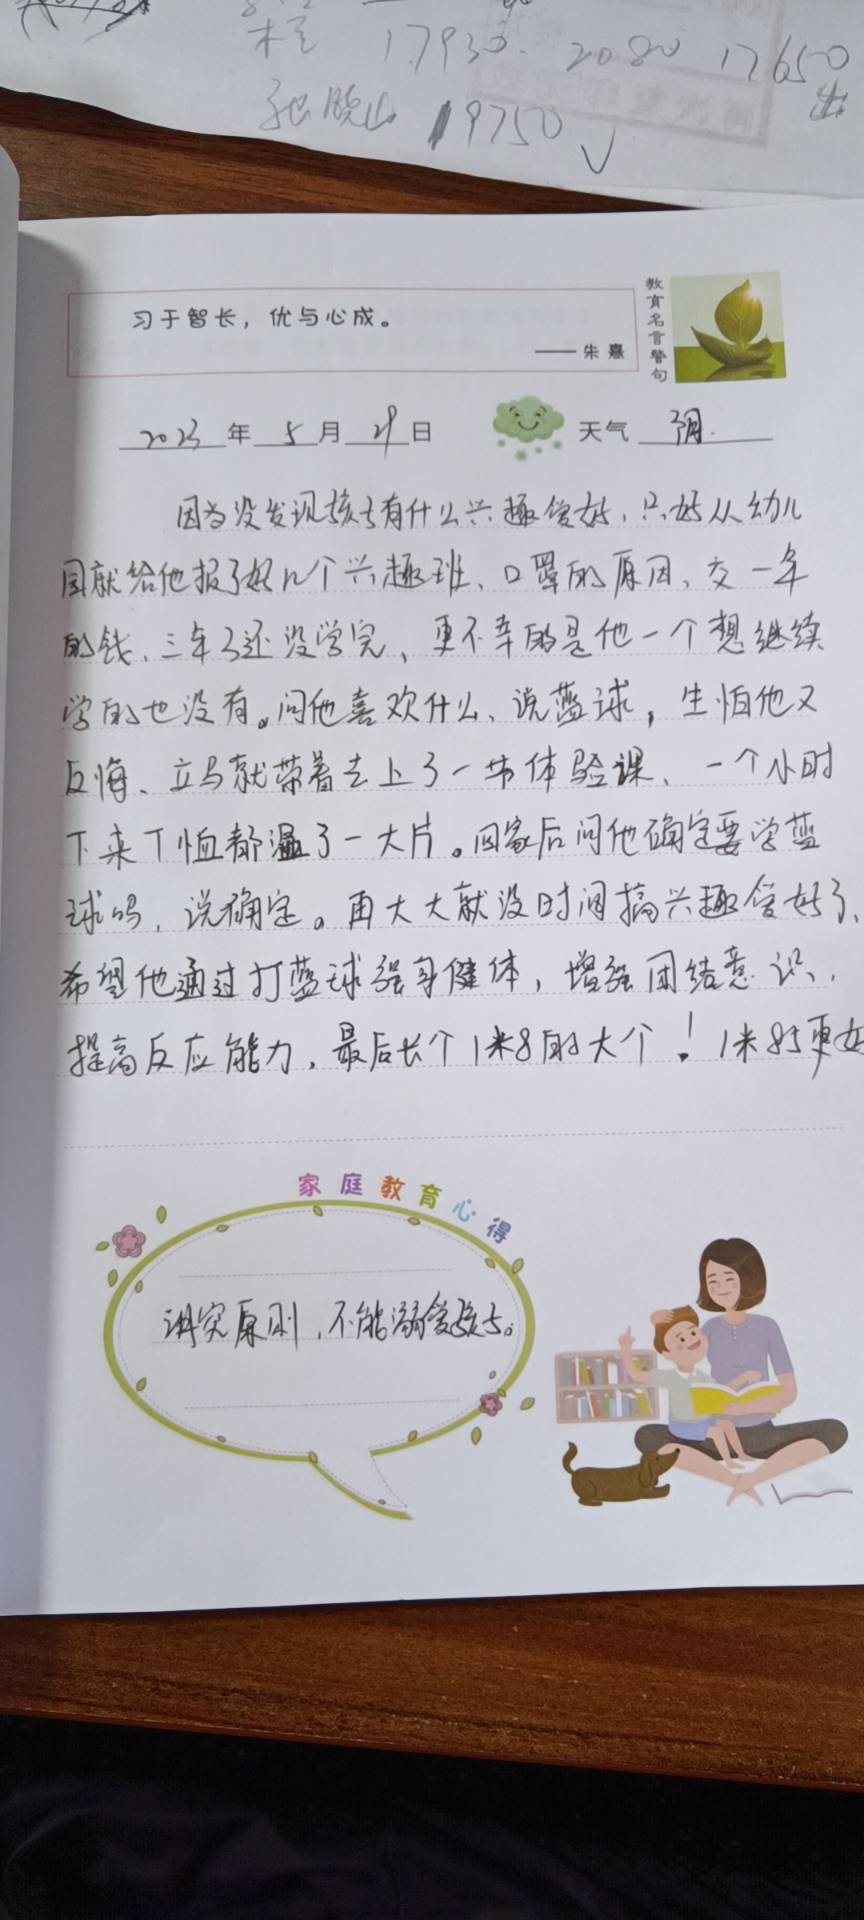 17930. 2080 17650
出
张晓山 19750 √
习于智长，优与心成。
——朱熹
教育名言警句
2023年5月29日 天气 阴.
因为没发现孩子有什么兴趣爱好，只好从幼儿
园就给他报了好几个兴趣班、口罩的原因、交一年
的钱、三年了还没学完、更不幸的是他一个想继续
学的也没有。问他喜欢什么、说蓝球，生怕他又
反悔、立马就带着去上了一节体验课、一个小时
下来T恤都湿了一大片。回家后问他确定要学蓝
球吗，说确定。再大大就没时间搞兴趣爱好了、
希望他通过打蓝球强身健体，增强团结意识，
提高反应能力，最后长个1米8的大个！1米85更好
家庭教育心得
讲究原则，不能溺爱孩子。